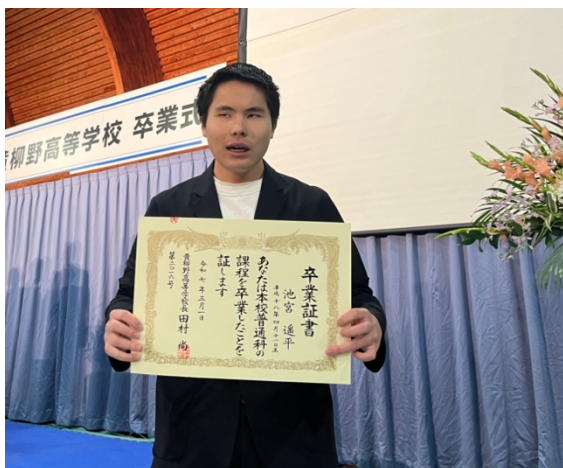 柳野高等学校 卒業式
卒業証書
池宮 遥平
平成十八年四月十一日生
あなたは本校普通科の
課程を卒業したことを
証します
令和七年三月一日
黄柳野高等学校長 田村 尚
第二〇一六号